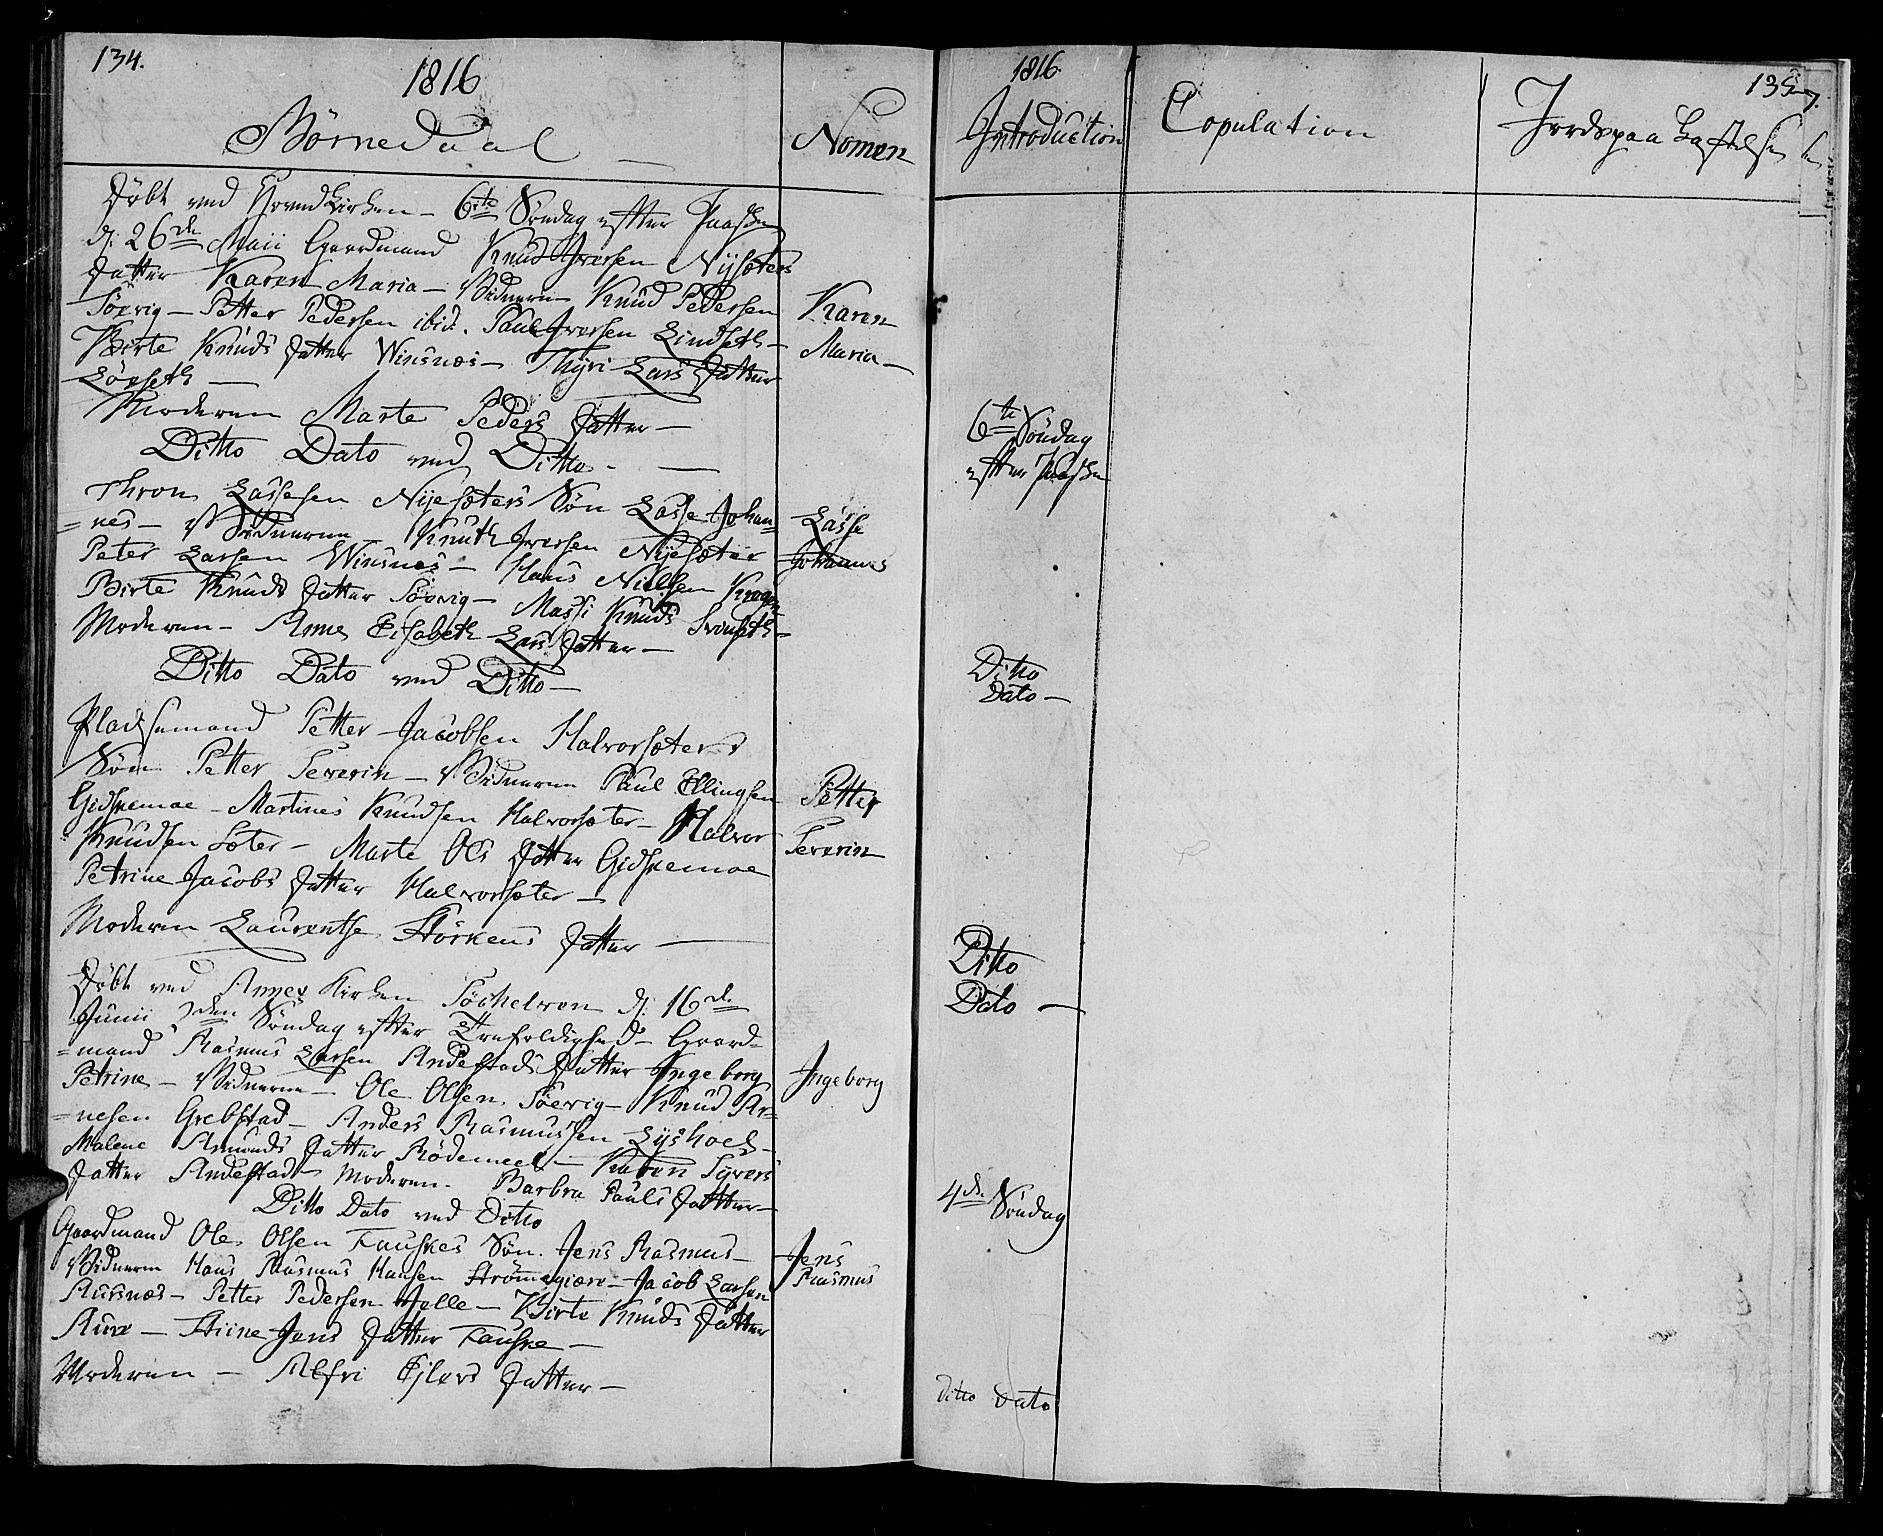 134.
1816
Børnedaab
Nomen
Døbt ved Hovedkirken - 6te Søndag efter Paaske
d: 26de Maii Gaardmand Knud Iversen Nysæters
Datter Karen Maria - Vidnerne Knud Pedersen
Søevig - Petter Pedersen ibid. Paul Iversen Lindseth -
Birte Knuds Datter Winsnæs - Thyri Lars Datter
Løvseth -
Karen
Maria -
Moderen Marte Peders Datter -
Ditto Dato ved Ditto. -
Thron Lassesen Nyesæters Søn Lasse Johan=
=nes - Vidnerne Knuth Iversen Nyesæter
Peter Larsen Winsnæs - Hans Nielsen
Birte Knuds Datter Søevig - Massi Knuds
Moderen - Anne Elisabeth Lars Datter -
Lasse
Johannes
Ditto Dato ved Ditto -
Pladsemand Petter Jacobsen Halvorsæters
Søn Petter Severin - Vidnerne Paul Ellingsen
Gidskemoe - Martines Knudsen Halvorsæter - Halvor
Knudsen Sæter - Marte Ols Datter Gidskemoe
Petrine Jacobs Datter Halvorsæter -
Moderen Laurentse Størkens Datter -
Petter
Severin
Døbt ved Annex Kirken Søchelven d: 16de
Junii 2den Søndag efter Trefoldighed - Gaard=
=mand Rasmus Larsen Andestads Datter Ingeborg
Petrine - Vidnerne - Ole Olsen Søevig - Knud Ar=
=nesen Grebstad - Anders Rasmussen Lyshoel -
Malene Amunds Datter Rødemeel - Karen Syvers
Datter Andestad - Moderen - Barbra Pauls Datter -
Ingeborg
Ditto Dato ved Ditto
Gaardmand Ole Olsen Fauskes Søn. Jens Rasmus -
Vidnerne Hans Rasmus Hansen Strømegiære - Jacob Larsen
Aursnæs - Petter Pedersen Helle - Birte Knuds Datter
Aure - Stiine Jens Datter Fauske -
Moderen - Alfri Ejlers Datter -
Jens
Rasmus
1816
135
Introduction
Copulation
Jordspaa Kastelse
6te Søndag
efter Paaske
Ditto
Dato -
Ditto
Dato -
4de Søndag
Ditto Dato